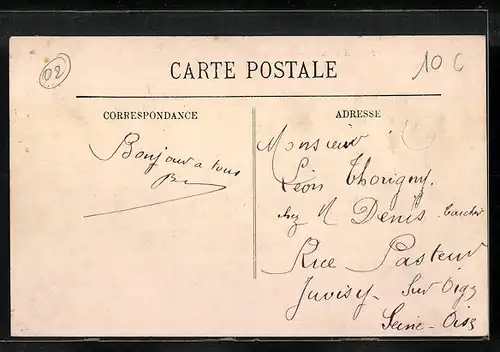 02
10 C
CARTE POSTALE
CORRESPONDANCE
ADRESSE
Bonjour a tous
Monsieur
Léon Thorigny.
chez M Denis
Rue Pasteur
Juvisy - Sur Orge
Seine-Oise